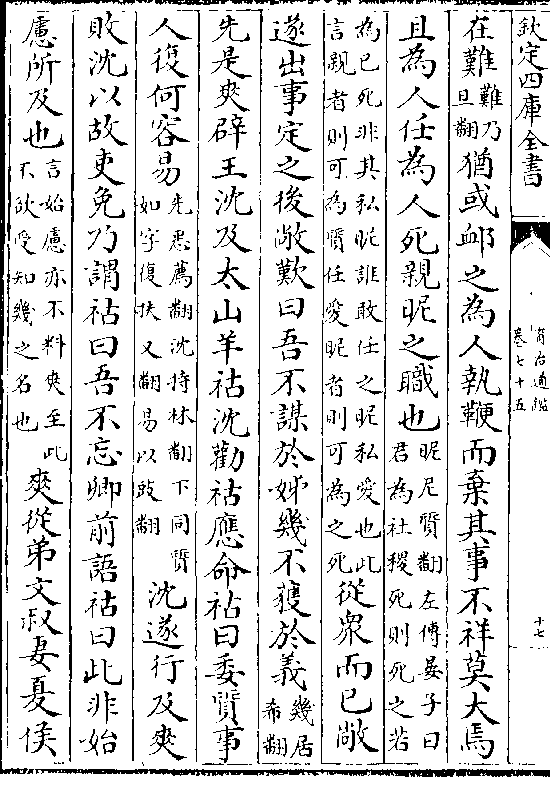 欽定四庫全書
資治通鑑
卷七十五
十七
在難難乃旦翻猶或䘏之為人執鞭而棄其事不祥莫大焉
且為人任為人死親昵之職也昵尼質翻左傳晏子曰君為社稷死則死之若
為己死非其私昵誰敢任之昵私愛也此言親者則可為質任愛昵者則可為之死從衆而已敞
遂出事定之後敞歎曰吾不謀於姊幾不獲於義幾居希翻
先是爽辟王沈及太山羊祜沈勸祜應命祜曰委質事
人復何容易先悉薦翻沈持林翻下同質如字復扶又翻易以豉翻沈遂行及爽
敗沈以故吏免乃謂祜曰吾不忘卿前語祜曰此非始
慮所及也言始慮亦不料爽至此不欲受知幾之名也爽從弟文叔妻夏侯